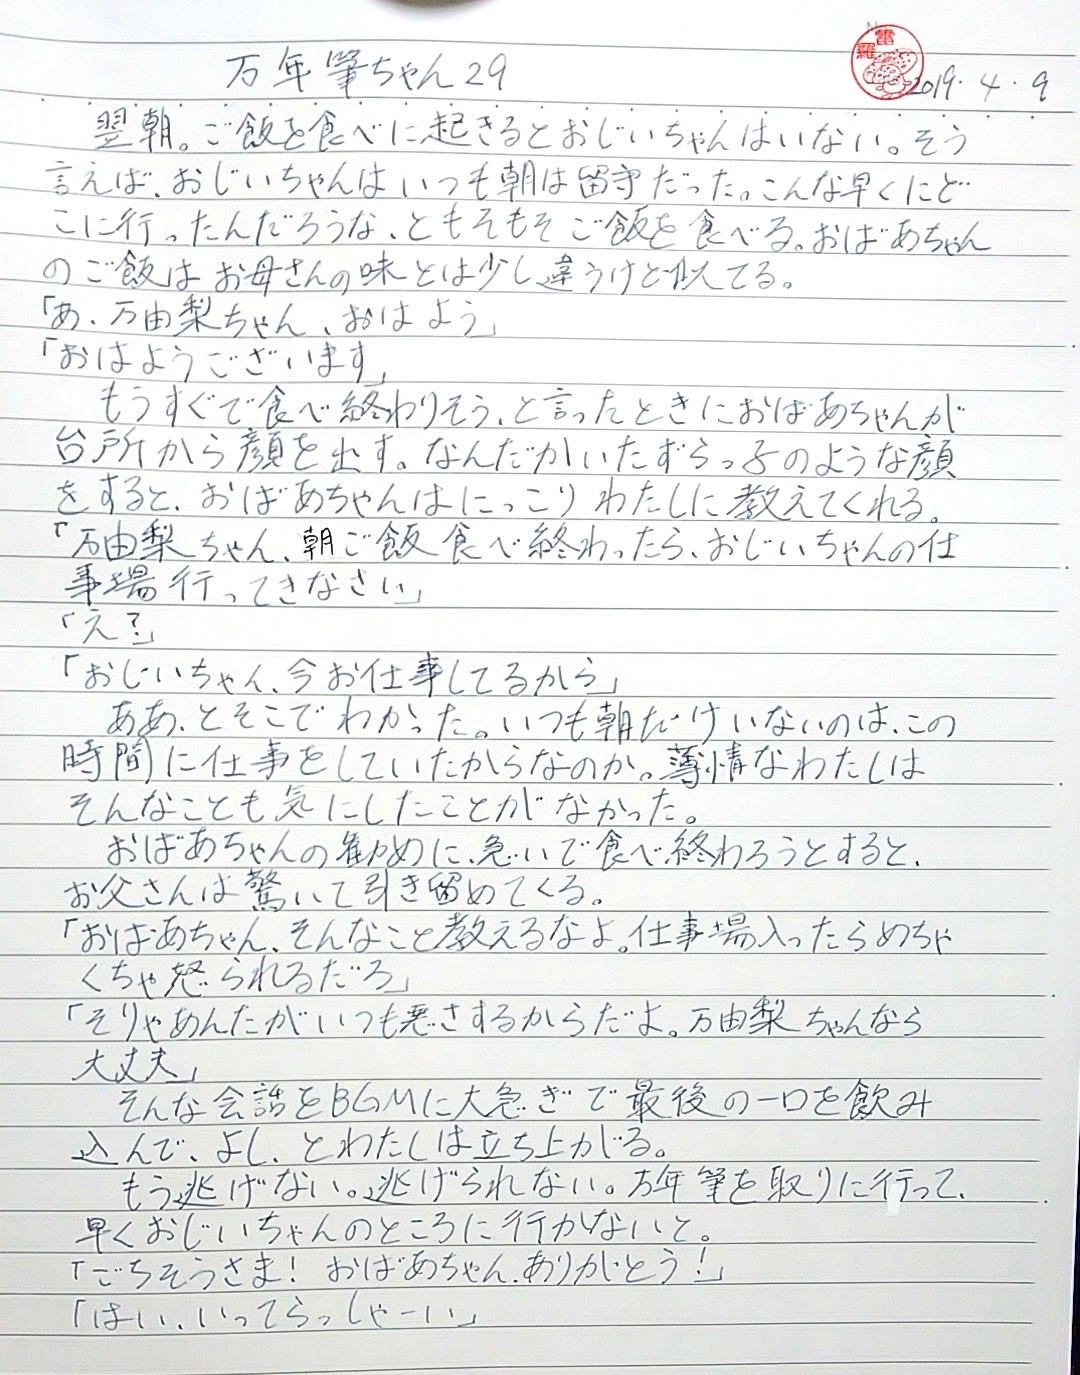 万年筆ちゃん29
雷羅
2019.4.9
翌朝。ご飯を食べに起きるとおじいちゃんはいない。そう
言えば、おじいちゃんはいつも朝は留守だった。こんな早くにど
こに行ったんだろうな、ともそもそご飯を食べる。おばあちゃん
のご飯はお母さんの味とは少し違うけど似てる。
「あ、万由梨ちゃん、おはよう」
「おはようございます」
もうすぐで食べ終わりそう、と言ったときにおばあちゃんが
台所から顔を出す。なんだかいたずらっ子のような顔
をすると、おばあちゃんはにっこりわたしに教えてくれる。
「万由梨ちゃん、朝ご飯食べ終わったら、おじいちゃんの仕
事場行ってきなさい」
「え?」
「おじいちゃん、今お仕事してるから」
ああ、とそこでわかった。いつも朝だけいないのは、この
時間に仕事をしていたからなのか。薄情なわたしは
そんなことも気にしたことがなかった。
おばあちゃんの勧めに、急いで食べ終わろうとすると、
お父さんは驚いて引き留めてくる。
「おばあちゃん、そんなこと教えるなよ。仕事場入ったらめちゃ
くちゃ怒られるだろ」
「そりゃあんたがいつも悪さするからだよ。万由梨ちゃんなら
大丈夫」
そんな会話をBGMに大急ぎで最後の一口を飲み
込んで、よし、とわたしは立ち上がる。
もう逃げない。逃げられない。万年筆を取りに行って、
早くおじいちゃんのところに行かないと。
「ごちそうさま! おばあちゃん、ありがとう!」
「はい、いってらっしゃーい」